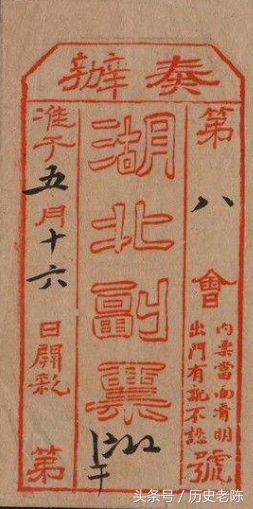 奏辦
第八會
內票當面看明
出門有訛不認
號
湖北副票
准于五月十六日開彩
第
头条号 / 历史老陈